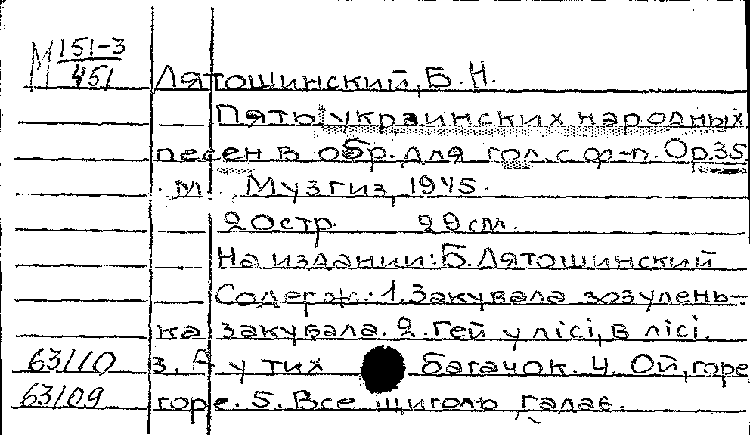 М 151-3
451
Лятошинский, Б.Н.
Пять украинских народных
песен в обр. для гол. с ф-п. Op.35
М. Музгиз, 1945.
20 стр. 29 см.
На издании: Б. Лятошинский
Содерж.: 1. Закувала зозулень-
ка закувала. 2. Гей у лісі, в лісі.
63110 3. А у тих багачок. 4. Ой, горе
63109 горе. 5. Все